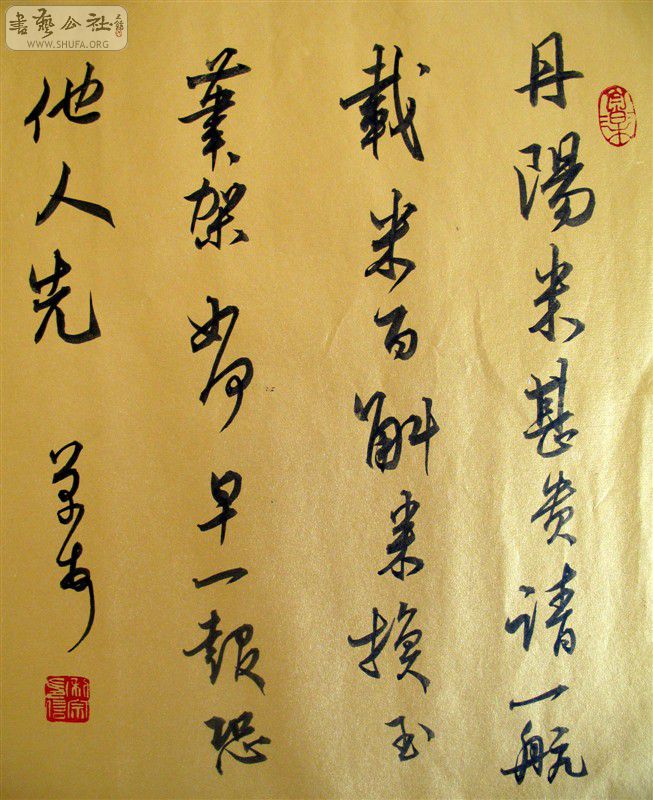 書藝公社
WWW.SHUFA.ORG
丹陽米甚貴請一航
載米百斛来換玉
筆架如何早一報恐
他人先